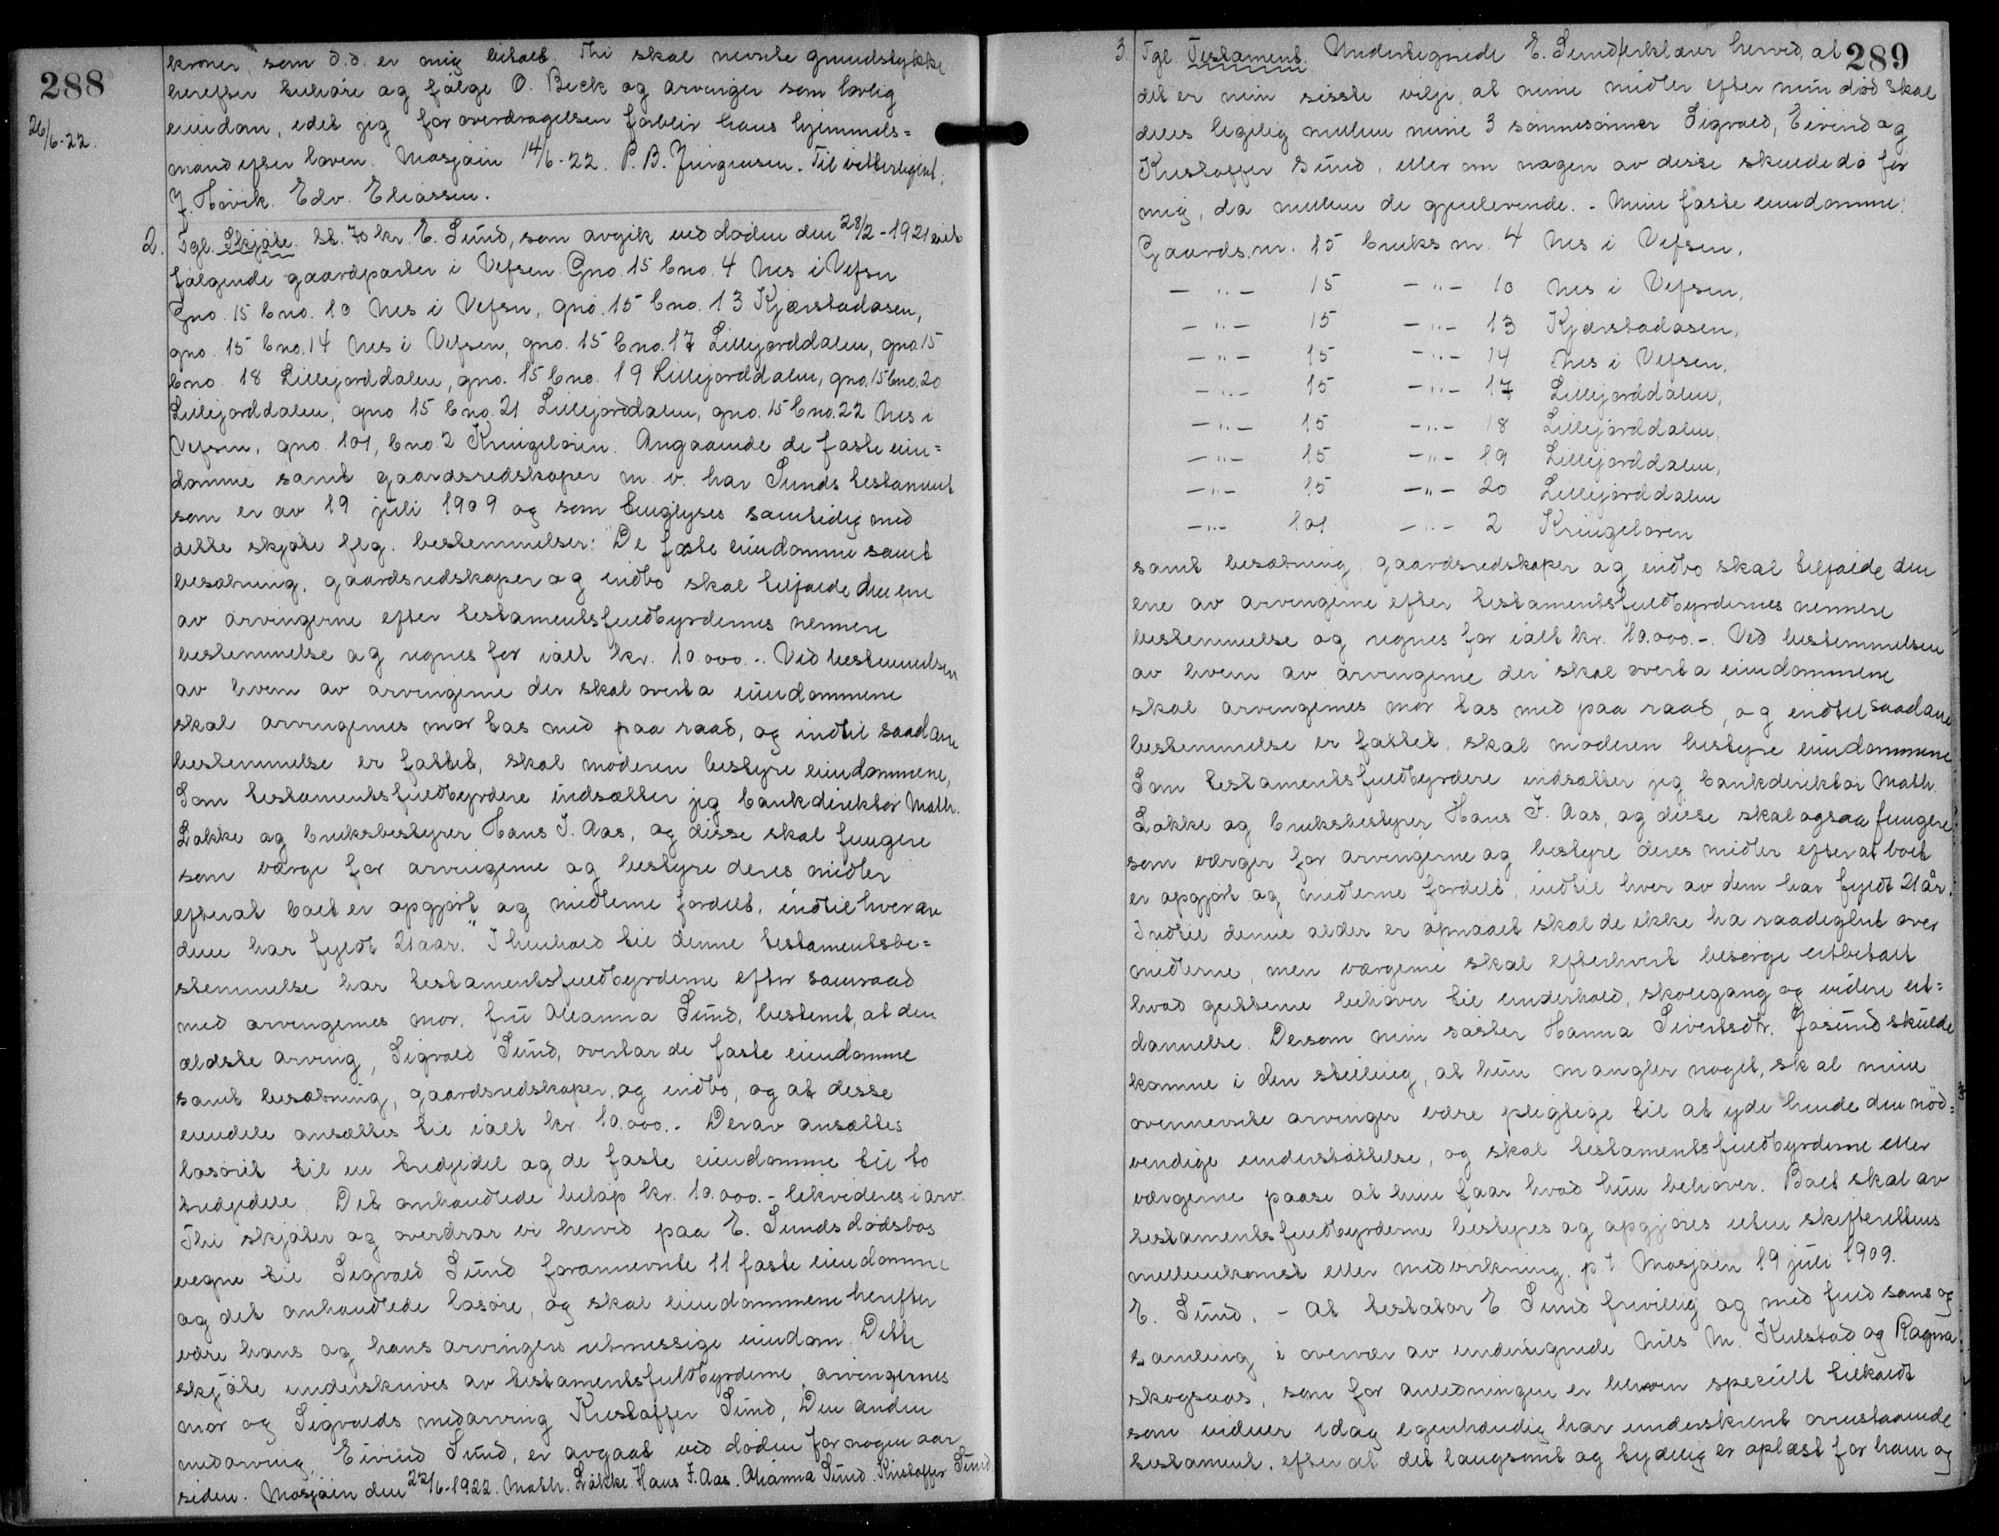 288
26/6-22.
kroner, som d.d. er mig betalt. Thi skal nevnte grundstykke
herefter tilhøre og følge O. Beck og arvinger som lovlig
eiendom, idet jeg for overdragelsen forblir hans hjemmels=
mand efter loven. Mosjøen 14/6-22. P. B. Jürgensen. Til vitterlighet:
J. Høvik. Edv. Eliassen.
2. Tgl. Skjøte. St. 70 kr. E. Sund, som avgik ved døden den 28/2-1921 eiet
følgende gaardparter i Vefsn Gno. 15 bno. 4 Nes i Vefsn
Gno. 15 bno. 10 Nes i Vefsn, gno. 15 bno. 13 Kjærstadåsen,
gno. 15 bno. 14 Nes i Vefsen, gno. 15 bno. 17 Lillejorddalen, gno. 15
bno. 18 Lillejorddalen, gno. 15 bno. 19 Lillejorddalen, gno. 15 bno. 20
Lillejorddalen, gno 15 bno. 21 Lillejorddalen, gno. 15 bno. 22 Nes i
Vefsen, gno. 101, bno. 2 Kringeløren. Angaaende de faste eien=
domme samt gaardsredskaper m. v. har Sunds testament
som er av 19 juli 1909 og som tinglyses samtidig med
dette skjøte flg. bestemmelser: "De faste eiendomme samt
besætning, gaardsredskaper og indbo skal tilfalde den ene
av arvingerne efter testamentsfuldbyrdernes nermere
bestemmelse og regnes for ialt kr. 10.000.-. Ved bestemmelsen
av hvem av arvingerne der skal overta eiendommene
skal arvingernes mor tas med paa raad, og indtil saadan
bestemmelse er fattet, skal moderen bestyre eiendommene,
Som testamentsfuldbyrdere indsætter jeg bankdirektør Math.
Løkke og bruksbestyrer Hans J. Aas, og disse skal fungere
som værge for arvingerne og bestyre deres midler
efterat boet er opgjort og midlerne fordelt, indtil hver av
dem har fyldt 21 aar." I henhold til denne testamentsbe=
stemmelse har testamentsfuldbyrderne efter samraad
med arvingernes mor, fru Alianna Sund, bestemt, at den
ældste arving, Sigvald Sund, overtar de faste eiendomme
samt besætning, gaardsredskaper, og indbo, og at disse
eiendele ansættes til ialt kr. 10.000.- Derav ansættes
løsøret til en tredjedel og de faste eiendomme til to
tredjedele. Det omhandlede beløp kr. 10.000.- likvideres i arv.
Thi skjøter og overdrar vi herved paa E. Sunds dødsbos
vegne til Sigvald Sund forannevnte 11 faste eiendomme
og det omhandlede løsøre, og skal eiendommene herefter
være hans og hans arvingers retmessige eiendom. Dette
skjøte underskrives av testamentsfuldbyrderne, arvingernes
mor og Sigvalds medarving Kristoffer Sund, Den anden
medarving, Eivind Sund, er avgaat ved døden for nogen aar
siden. Mosjøen den 22/6-1922. Math. Løkke. Hans J. Aas. Alianna Sund. Kristoffer Sund
289
3. Tgl. Testament. Undertegnede E. Sund erklærer herved, at
det er min sidste vilje, at mine midler efter min død skal
deles ligelig mellem mine 3 sønnesønner Sigvald, Eivind og
Kristoffer Sund, eller om nogen av disse skulde dø før
mig, da mellem de gjenlevende. - Mine faste eiendomme:
Gaards.nr. 15 bruks nr. 4 Nes i Vefsen,
- " - 15 - " - 10 Nes i Vefsen,
- " - 15 - " - 13 Kjærstadåsen,
- " - 15 - " - 14 Nes i Vefsen,
- " - 15 - " - 17 Lillejorddalen,
- " - 15 - " - 18 Lillejorddalen,
- " - 15 - " - 19 Lillejorddalen,
- " - 15 - " - 20 Lillejorddalen
- " - 101 - " - 2 Kringeløren
samt besætning, gaardsredskaper og indbo skal tilfalde den
ene av arvingerne efter testamentsfuldbyrdernes nermere
bestemmelse og regnes for ialt kr. 10.000.-. Ved bestemmelsen
av hvem av arvingerne der skal overta eiendommene
skal arvingernes mor tas med paa raad, og indtil saadan
bestemmelse er fattet, skal moderen bestyre eiendommene
Som testamentsfuldbyrdere indsætter jeg bankdirektør Math.
Løkke og bruksbestyrer Hans J. Aas, og disse skal ogsaa fungere
som værger for arvingerne og bestyre deres midler efter at boet
er opgjort og midlerne fordelt, indtil hver av dem har fyldt 21 år.
Indtil denne alder er opnaaet skal de ikke ha raadighet over
midlerne, men værgerne skal efterhvert besørge utbetalt
hvad guttene behøver til underhold, skolegang og videre ut=
dannelse. Dersom min søster Hanna Sivertsdtr. Jøsund skulde
komme i den stilling, at hun mangler noget, skal mine
ovennevnte arvinger være pligtige til at yde hende den nød=
vendige understøttelse, og skal testamentsfuldbyrderne eller
værgerne paase at hun faar hvad hun behøver. Boet skal av
testamentsfuldbyrderne bestyres og opgjøres uten skifterettens
mellemkomst eller medvirkning. p t Mosjøen 19 juli 1909.
E. Sund. - At testator E Sund frivillig og med fuld sans og
samling i overvær av undertegnede Nils M. Kulstad og Ragna
Skogsaas, som for anledningen er hertil specielt tilkaldt
som vidner idag egenhændig har underskrevet ovenstaaende
testament, efter at det langsomt og tydelig er oplæst for ham og